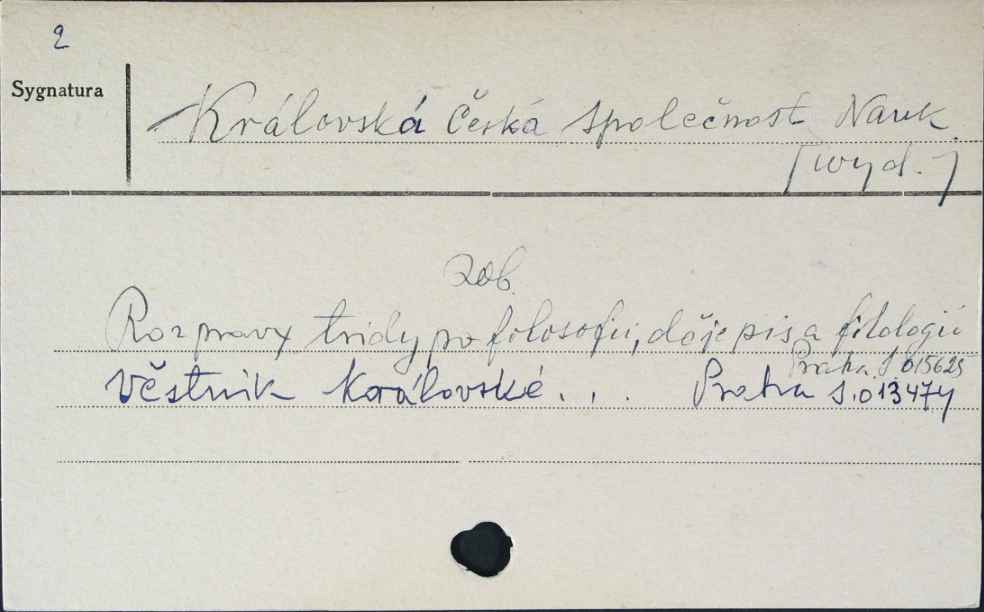 2
Sygnatura
Královská Česká Společnost Nauk.
[wyd.]
zob.
Rozpravy tridy pro filosofii, dějepis a filologii
Praha S 015625
Věstnik Královské... Praha S.013474